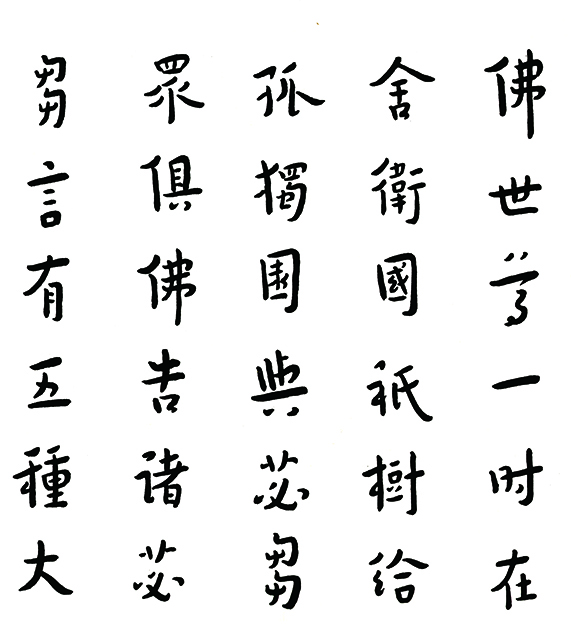 佛世尊一时在
舍衛國祇樹给
孤獨園與苾芻
眾俱佛告诸苾
芻言有五種大